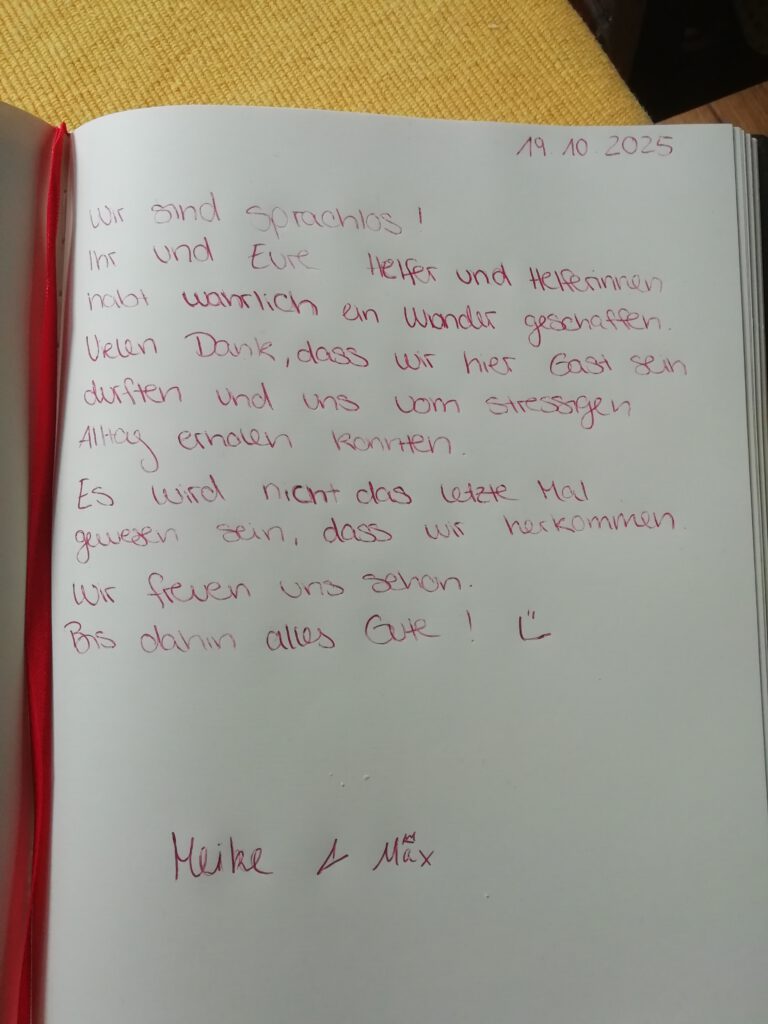 19.10.2025
Wir sind sprachlos!
Ihr und Eure Helfer und Helferinnen
habt wahrlich ein Wunder geschaffen.
Vielen Dank, dass wir hier Gast sein
durften und uns vom stressigen
Alltag erholen konnten.
Es wird nicht das letzte Mal
gewesen sein, dass wir herkommen.
Wir freuen uns schon.
Bis dahin alles Gute!
Meike & Max